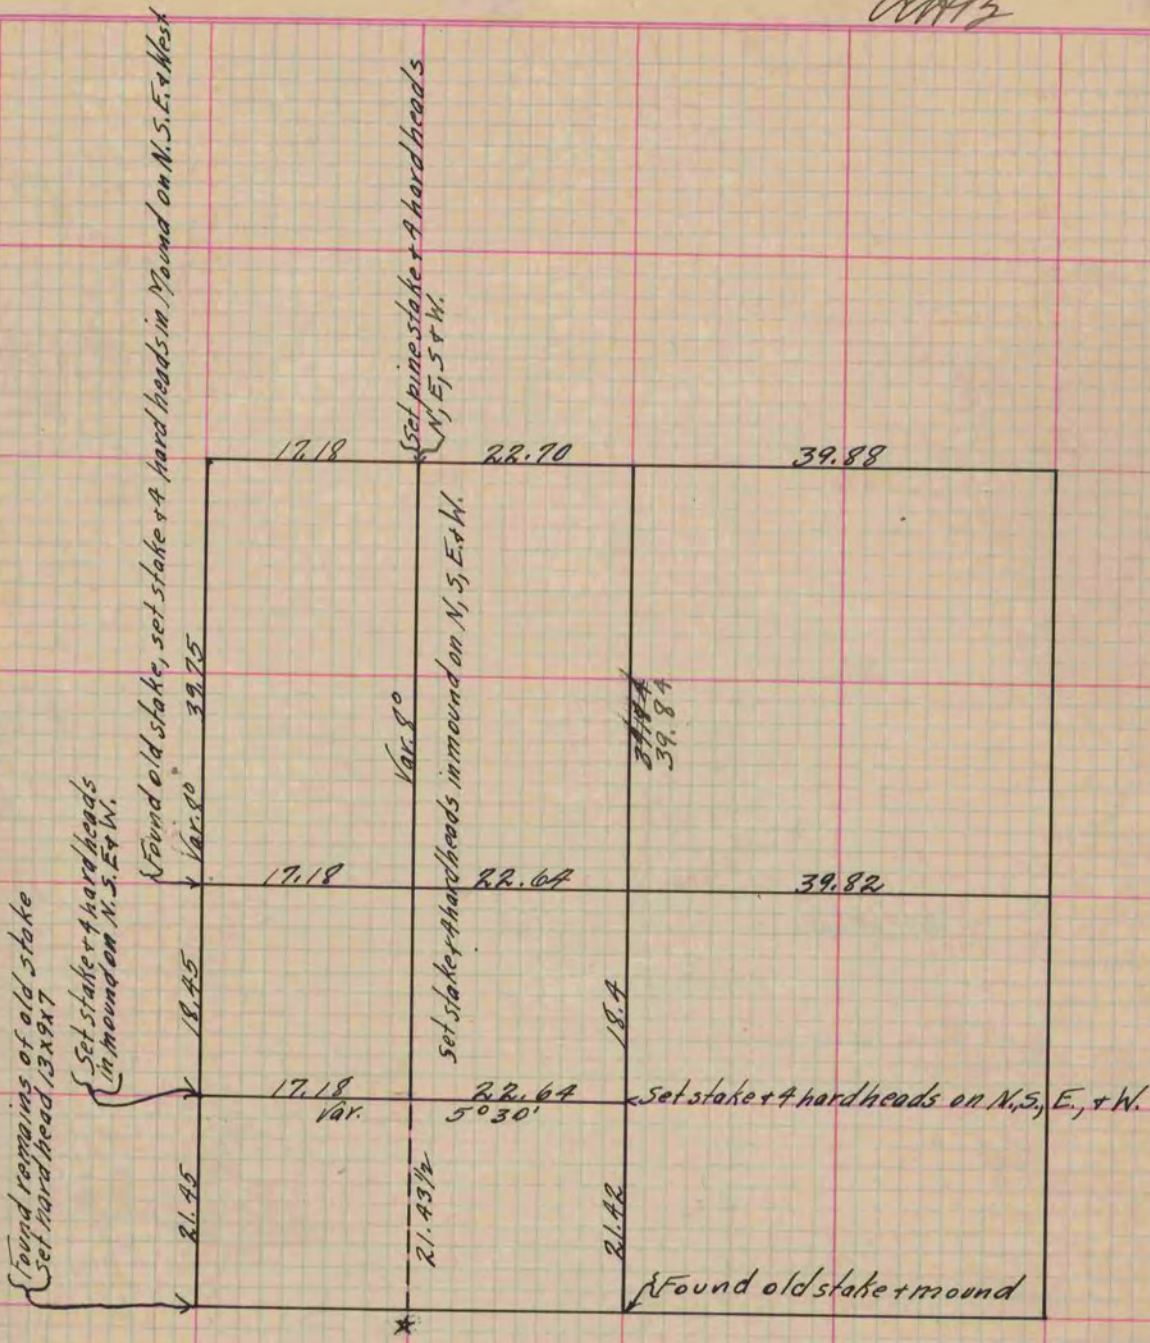 {Found old stake, set stake & 4 hard heads in Mound on N.S.E. & West
{Set pine stake & 4 hard heads
N, E, S & W.
17.18
22.70
39.88
39.75
Var. 8°
Var. 8°
Set stake & 4 hardheads in mound on N, S, E. & W.
39.84
17.18
22.64
39.82
{Set stake & 4 hard heads
in mound on N.S. E & W.
{Found remains of old stake
Set hard head 13x9x7
18.45
18.4
17.18
22.64
Var.
5°30'
Set stake & 4 hardheads on N., S., E., & W.
21.45
21.43½
21.42
{Found old stake & mound